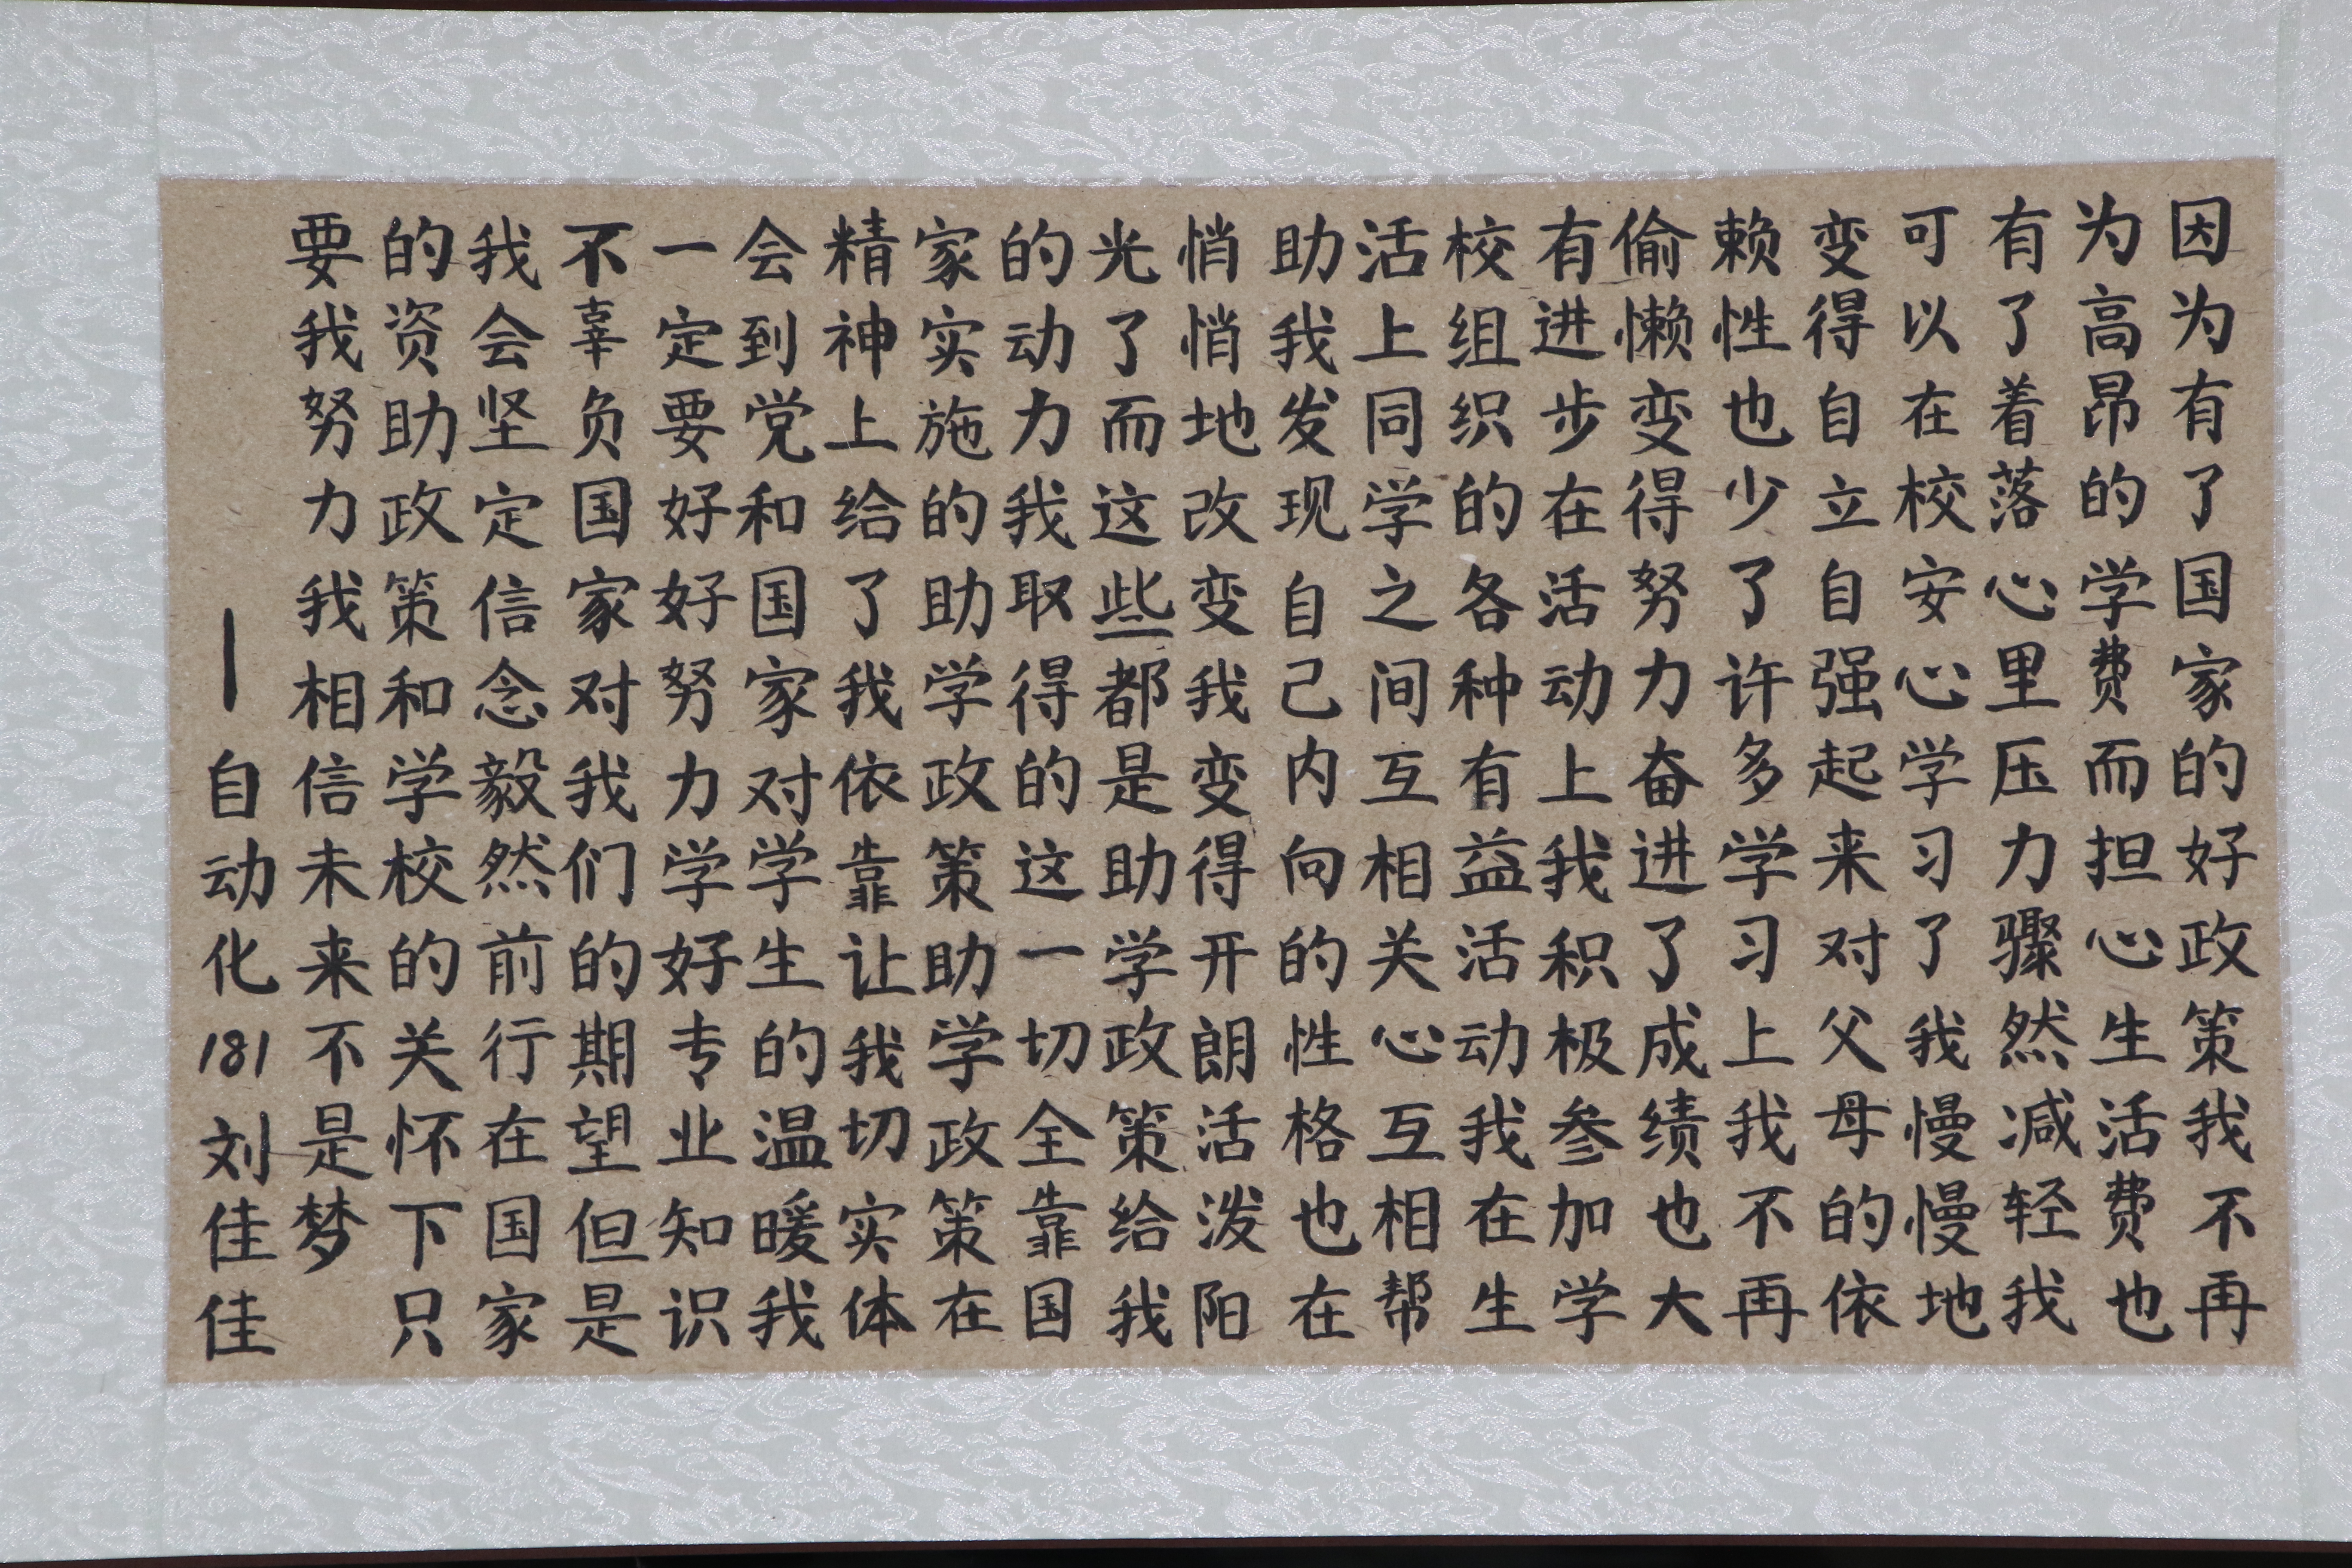 因为有了国家的好政策我不再
为高昂的学费而担心生活费也
有了着落心里压力骤然减轻我
可以在校安心学习了我慢慢地
变得自立自强起来对父母的依
赖性也少了许多学习上我不再
偷懒变得努力奋进了成绩也大
有进步在活动上我积极参加学
校组织的各种有益活动我在生
活上同学之间互相关心互相帮
助我发现自己内向的性格也在
悄悄地改变我变得开朗活泼阳
光了而这些都是助学政策给我
的动力我取得的这一切全靠国
家实施的助学政策助学政策在
精神上给了我依靠让我切实体
会到党和国家对学生的温暖我
一定要好好努力学好专业知识
不辜负国家对我们的期望但是
我会坚定信念毅然前行在国家
的资助政策和学校的关怀下只
要我努力我相信未来不是梦
—自动化181刘佳佳